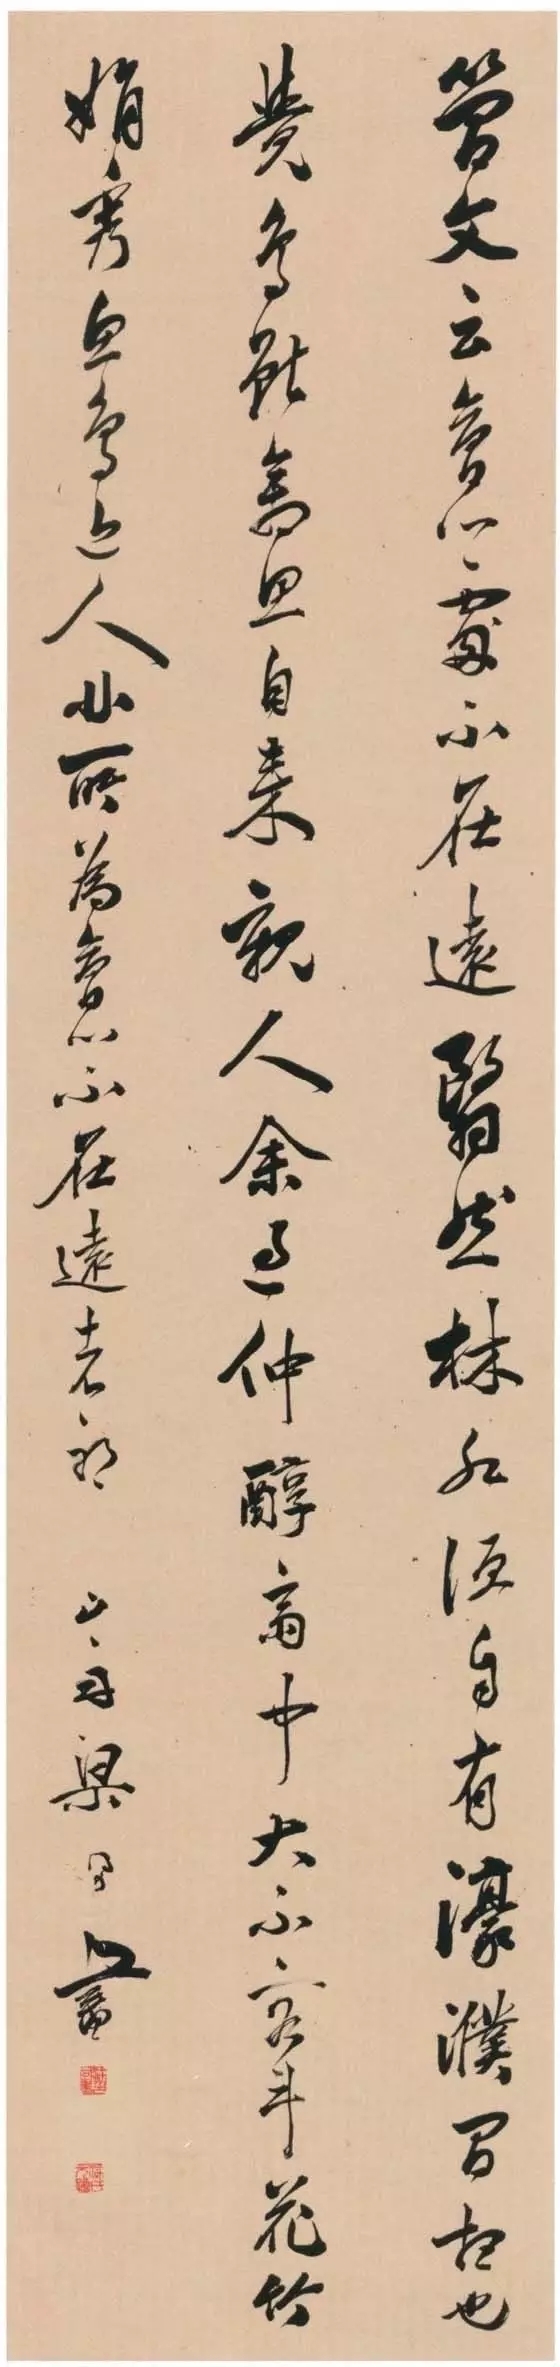 簡文云會心處不在遠翳然林水便自有濠濮間想也
覺鳥獸禽魚自來親人余過仲醇齋中大不容斗花竹
娟秀魚鳥近人此所為會心不在遠者耶 山舟梁同書